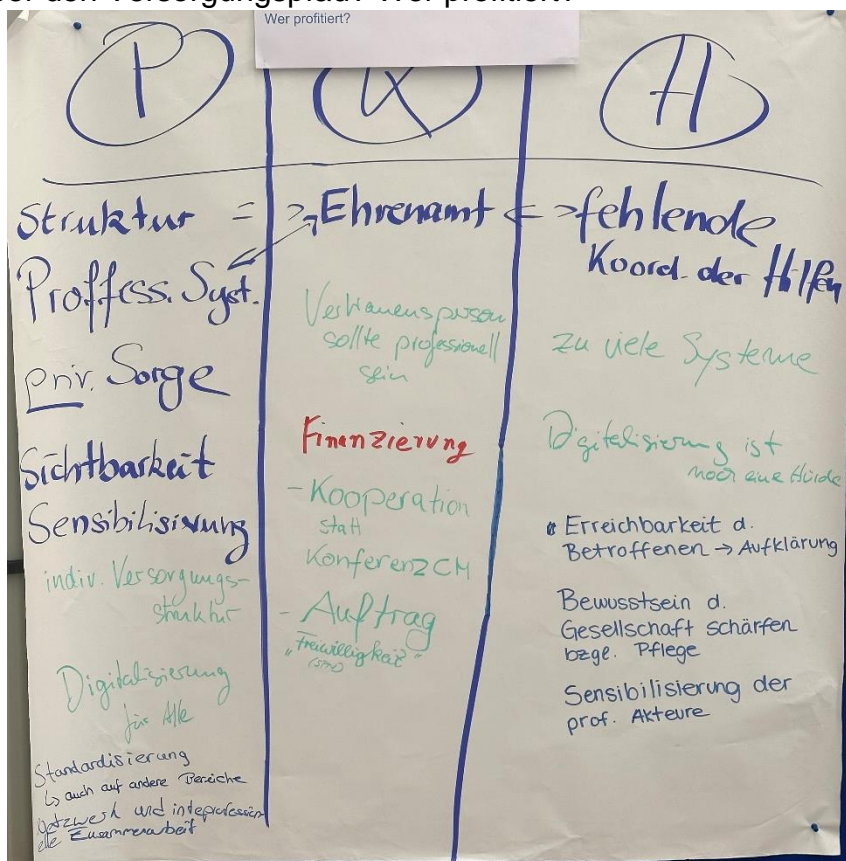 Wer profitiert?
P
K
H
Struktur =
Proffess. Syst.
priv. Sorge
Sichtbarkeit
Sensibilisirung
indiv. Versorgungs-
struktur
Digitalisierung
für Alle
Standardisierung
↳ auch auf andere Bereiche
Netzwerk und inteprofession-
elle Zusammenarbeit
>Ehrenamt < >
Vertrauensperson
sollte professionell
sein
Finanzierung
- Kooperation
statt
Konferenz CM
- Auftrag
"Freiwilligkeit"
fehlende
Koord. der Hilfen
zu viele Systeme
Digitalisierung ist
noch eine Hürde
Erreichbarkeit d.
Betroffenen → Aufklärung
Bewusstsein d.
Gesellschaft schärfen
bzge. Pflege
Sensibilisierung der
prof. Akteure